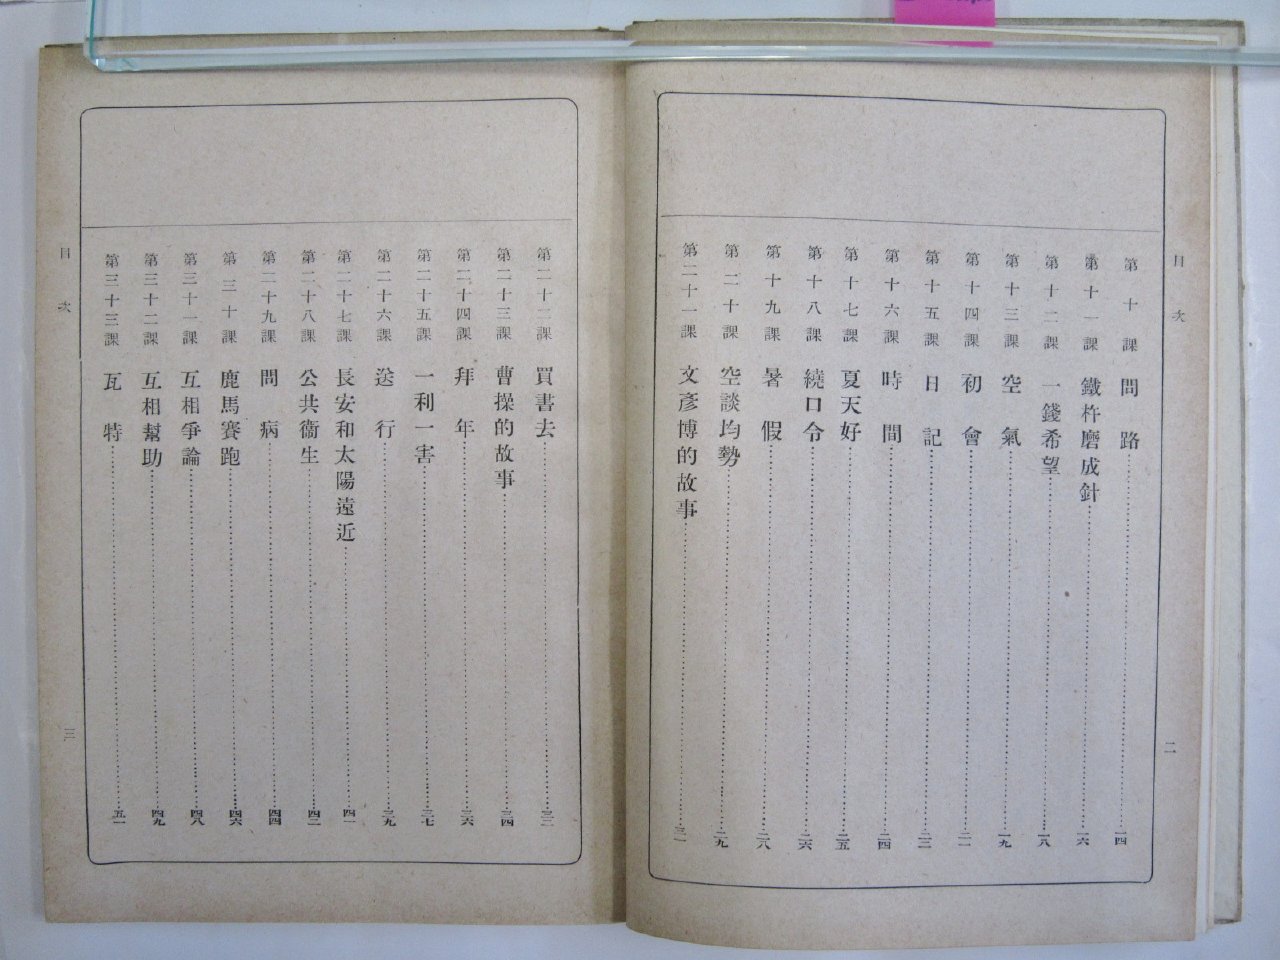 目次
二
第十課 問路 一四
第十一課 鐵杵磨成針 一六
第十二課 一錢希望 一八
第十三課 空氣 一九
第十四課 初會 二一
第十五課 日記 二三
第十六課 時間 二四
第十七課 夏天好 二五
第十八課 繞口令 二六
第十九課 暑假 二八
第二十課 空談均勢 二九
第二十一課 文彥博的故事 三一
第二十二課 買書去 三三
第二十三課 曹操的故事 三四
第二十四課 拜年 三六
第二十五課 一利一害 三七
第二十六課 送行 三九
第二十七課 長安和太陽遠近 四一
第二十八課 公共衞生 四二
第二十九課 問病 四四
第三十課 鹿馬賽跑 四六
第三十一課 互相爭論 四八
第三十二課 互相幫助 四九
第三十三課 瓦特 五一
目次
三